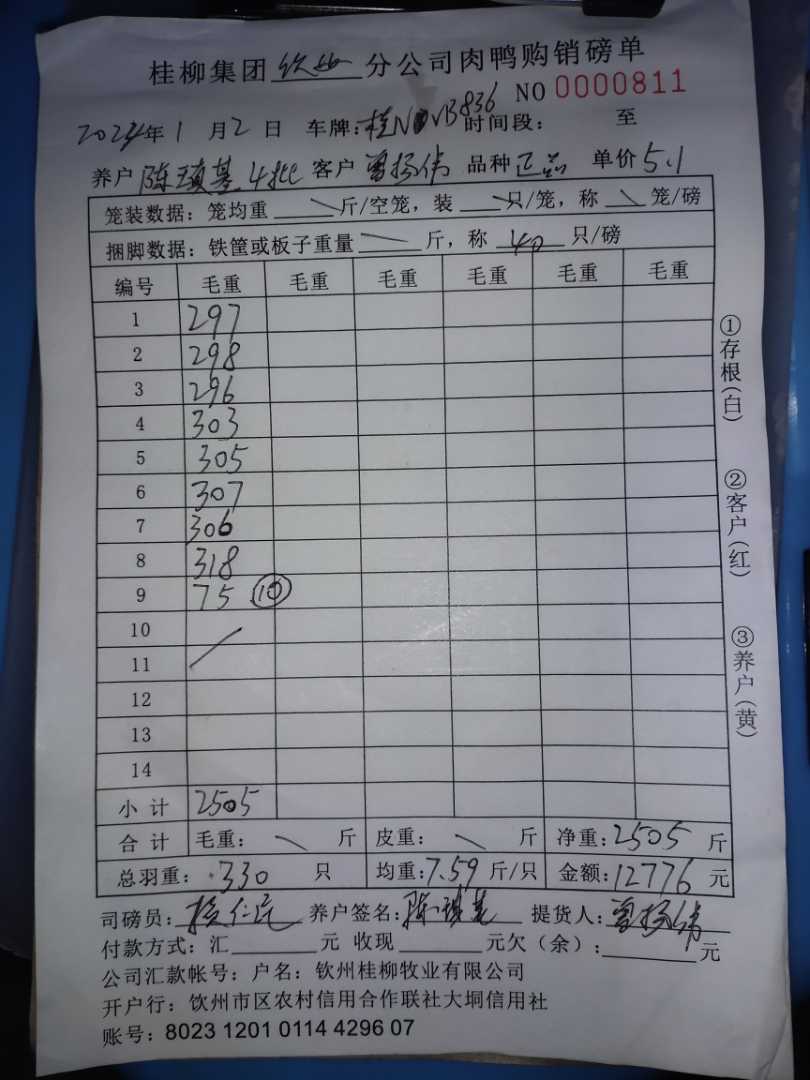 桂柳集团 钦州 分公司肉鸭购销磅单
NO 0000811
2024年1月2日 车牌:桂N VB836 时间段: 至
养户 陈 基 4批 客户 曾杨伟 品种 正品 单价 5.1
笼装数据: 笼均重 斤/空笼, 装 只/笼, 称 笼/磅
捆脚数据: 铁筐或板子重量 斤, 称 40 只/磅
编号 毛重 毛重 毛重 毛重 毛重 毛重
1 297
2 298
3 296
4 303
5 305
6 307
7 306
8 318
9 75 ⑩
10
11
12
13
14
小计 2505
合计 毛重: 斤 皮重: 斤 净重: 2505 斤
总羽重: 330 只 均重: 7.59 斤/只 金额: 12776 元
司磅员: 养户签名: 陈 基 提货人: 曾杨伟
付款方式: 汇 元 收现 元欠(余): 元
公司汇款帐号: 户名: 钦州桂柳牧业有限公司
开户行: 钦州市区农村信用合作联社大垌信用社
账号: 8023 1201 0114 4296 07
①存根(白)
②客户(红)
③养户(黄)